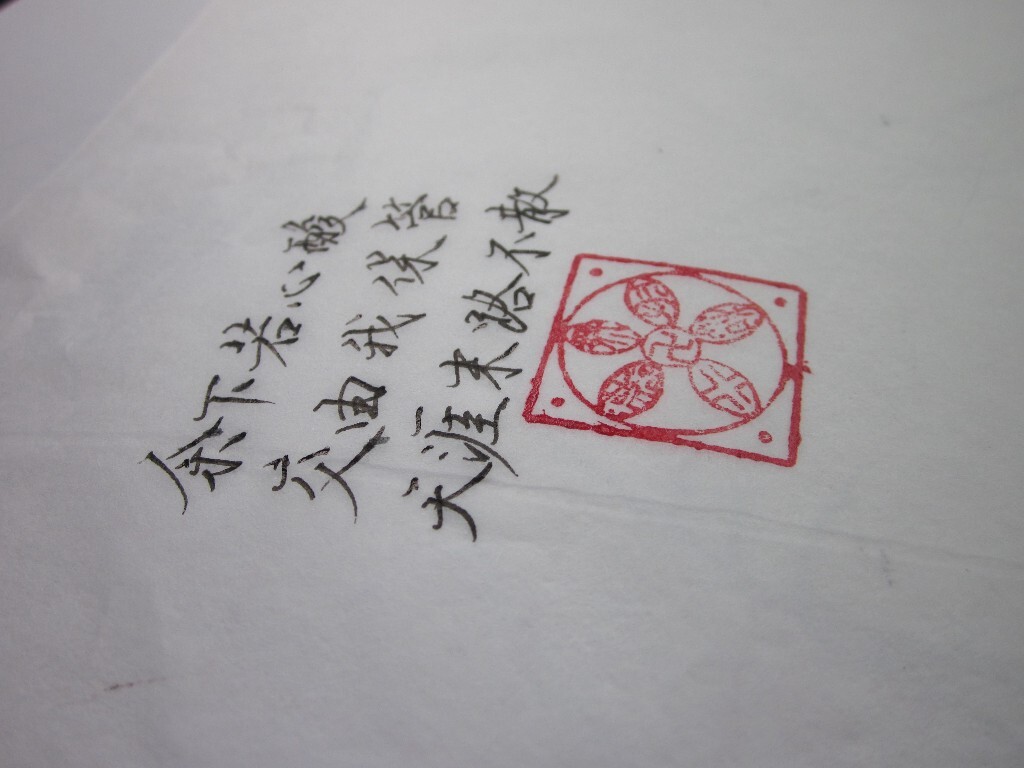 余下苦心酸
交由我保管
天涯末路不散